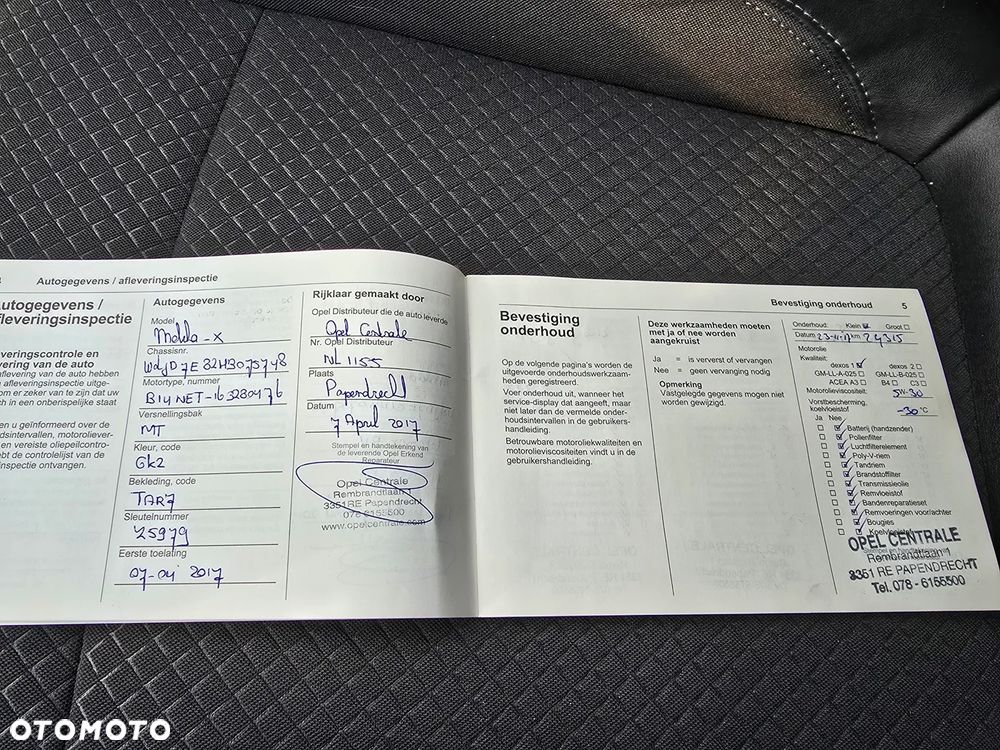 Autogegevens / afleveringsinspectie
utogegevens /
fleveringsinspectie
veringscontrole en
vering van de auto
aflevering van de auto hebben
e afleveringsinspectie uitge-
om er zeker van te zijn dat uw
ch in een onberispelijke staat
en u geïnformeerd over de
udsintervallen, motoroliever-
en vereiste oliepeilcontro-
ebt de controlelijst van de
inspectie ontvangen.
Autogegevens
Model
Mokka - X
Chassisnr.
Motortype, nummer
B14NET-
Versnellingsbak
MT
Kleur, code
GK2
Bekleding, code
TAR7
Sleutelnummer
25979
Eerste toelating
07-04 2017
Rijklaar gemaakt door
Opel Distributeur die de auto leverde
Opel Centrale
Nr. Opel Distributeur
NL 1155
Plaats
Papendrecht
Datum
7 April 2017
Stempel en handtekening van
de leverende Opel Erkend
Reparateur
Opel Centrale
Rembrandtlaan 1
3351RE Papendrecht
078 6155500
www.opelcentrale.com
Bevestiging onderhoud 5
Bevestiging
onderhoud
Op de volgende pagina's worden de
uitgevoerde onderhoudswerkzaam-
heden geregistreerd.
Voer onderhoud uit, wanneer het
service-display dat aangeeft, maar
niet later dan de vermelde onder-
houdsintervallen in de gebruikers-
handleiding.
Betrouwbare motoroliekwaliteiten en
motorolieviscositeiten vindt u in de
gebruikershandleiding.
Deze werkzaamheden moeten
met ja of nee worden
aangekruist
Ja = is ververst of vervangen
Nee = geen vervanging nodig
Opmerking
Vastgelegde gegevens mogen niet
worden gewijzigd.
Onderhoud: Klein Groot
Datum km 24315
Motorolie
Kwaliteit:
dexos 1 dexos 2
GM-LL-A-025 GM-LL-B-025
ACEA A3 B4 C3
Motorolieviscositeit: 5W-30
Vorstbescherming,
koelvloeistof -30 °C
Ja Nee
Batterij (handzender)
Pollenfilter
Luchtfilterelement
Poly-V-riem
Tandriem
Brandstoffilter
Transmissieolie
Remvloeistof
Bandenreparatieset
Remvoeringen voor/achter
Bougies
Koelvloeistof
OPEL CENTRALE
Rembrandtlaan 1
3351 RE PAPENDRECHT
Tel. 078 - 6155500
OTOMOTO